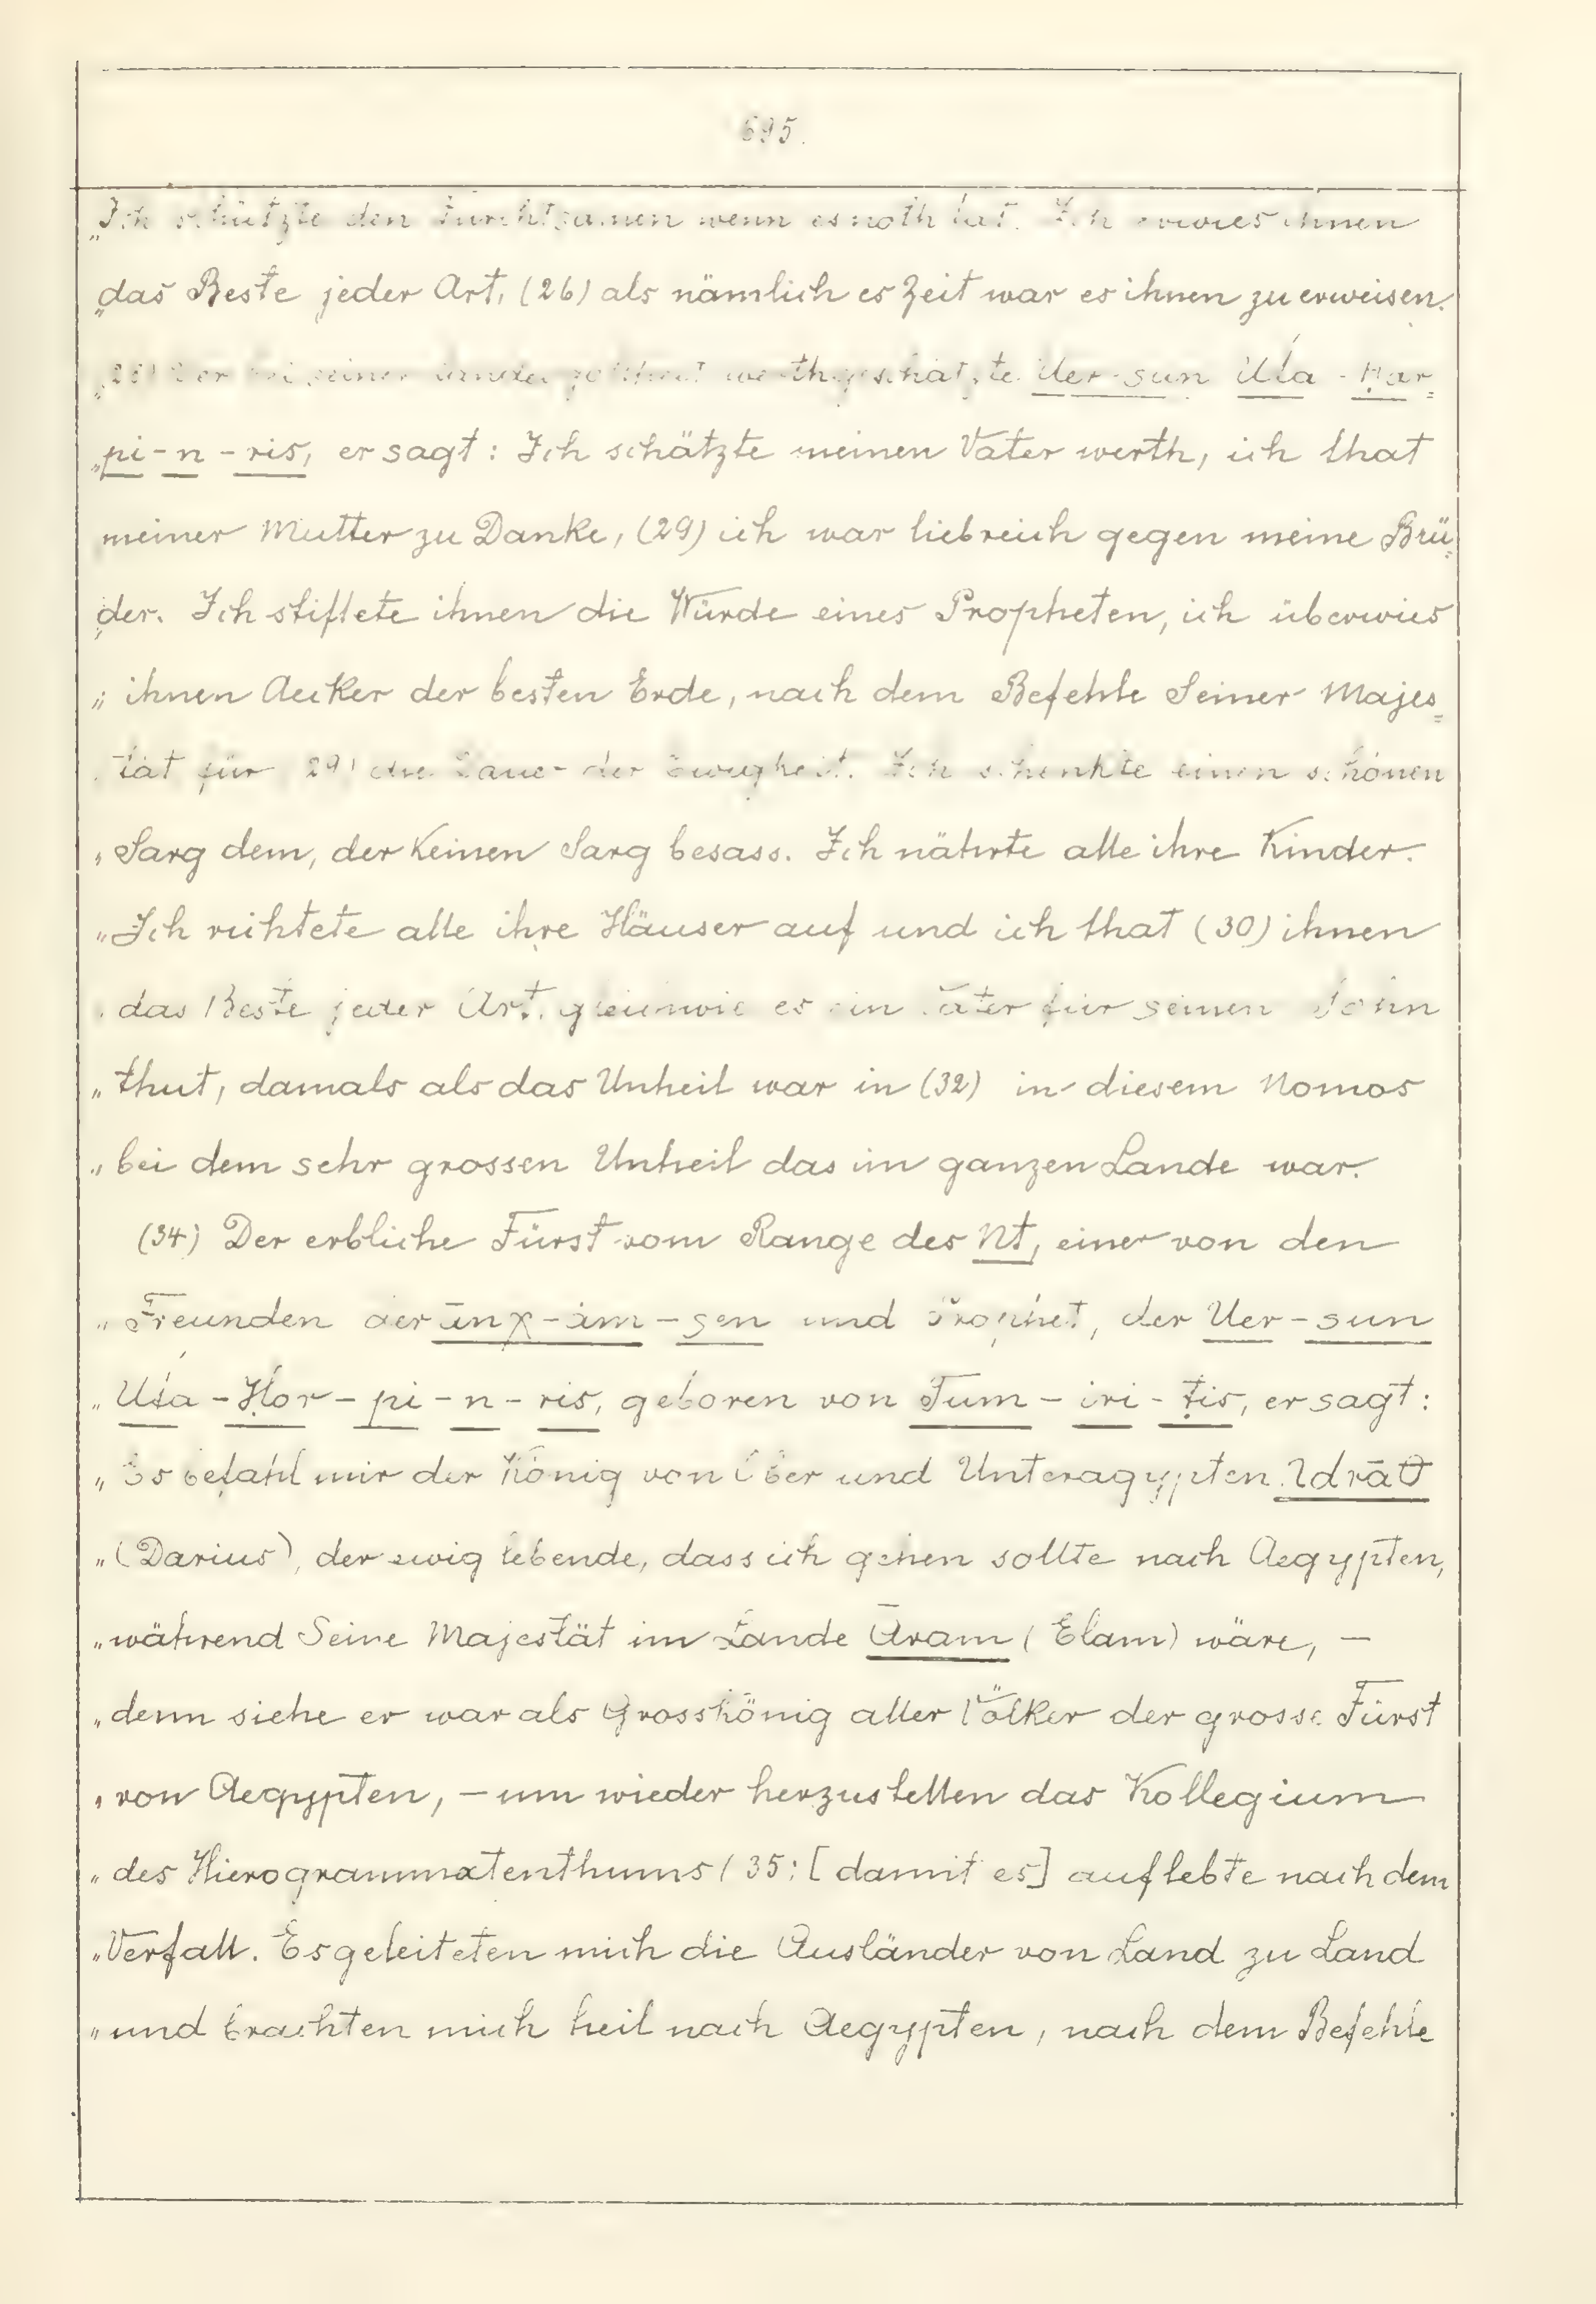 695.
„Ich schützte den Furchtsamen wenn es noth tat. Ich erwies ihnen
„das Beste jeder Art, (26) als nämlich es Zeit war es ihnen zu erweisen.
seiner werthgeschätzte Uer-sun Uṭa-Ḥar-
„pi-n-ris, er sagt: Ich schätzte meinen Vater werth, ich that
meiner Mutter zu Danke, (29) ich war liebreich gegen meine Brü-
„der. Ich stiftete ihnen die Würde eines Propheten, ich überwies
„ihnen Aecker der besten Erde, nach dem Befehle Seiner Majes-
tät für 29) die Dauer der Ewigkeit. Ich schenkte einen schönen
„Sarg dem, der keinen Sarg besass. Ich nährte alle ihre Kinder.
„Ich richtete alle ihre Häuser auf und ich that (30) ihnen
das Beste jeder Art, gleichwie es ein Vater für seinen Sohn
„thut, damals als das Unheil war in (32) in diesem Nomos
„bei dem sehr grossen Unheil das im ganzen Lande war.
(34) Der erbliche Fürst vom Range des Nt, einer von den
„Freunden der ānχ-ȧm-sen und Prophet, der Uer-sun
„Uṭa-Ḥor-pi-n-ris, geboren von Tum-iri-ṭis, er sagt:
„Es befahl mir der König von Ober und Unteragypten
„(Darius), der ewig lebende, dass ich gehen sollte nach Aegypten,
„während Seine Majestät im Lande Āram (Elam) wäre, –
„denn siehe er war als Grosskönig aller Völker der grosse Fürst
„von Aegypten, – um wieder herzustellen das Kollegium
„des Hierogrammatenthums (35: [damit es] auflebte nach dem
„Verfall. Es geleiteten mich die Ausländer von Land zu Land
„und brachten mich heil nach Aegypten, nach dem Befehle